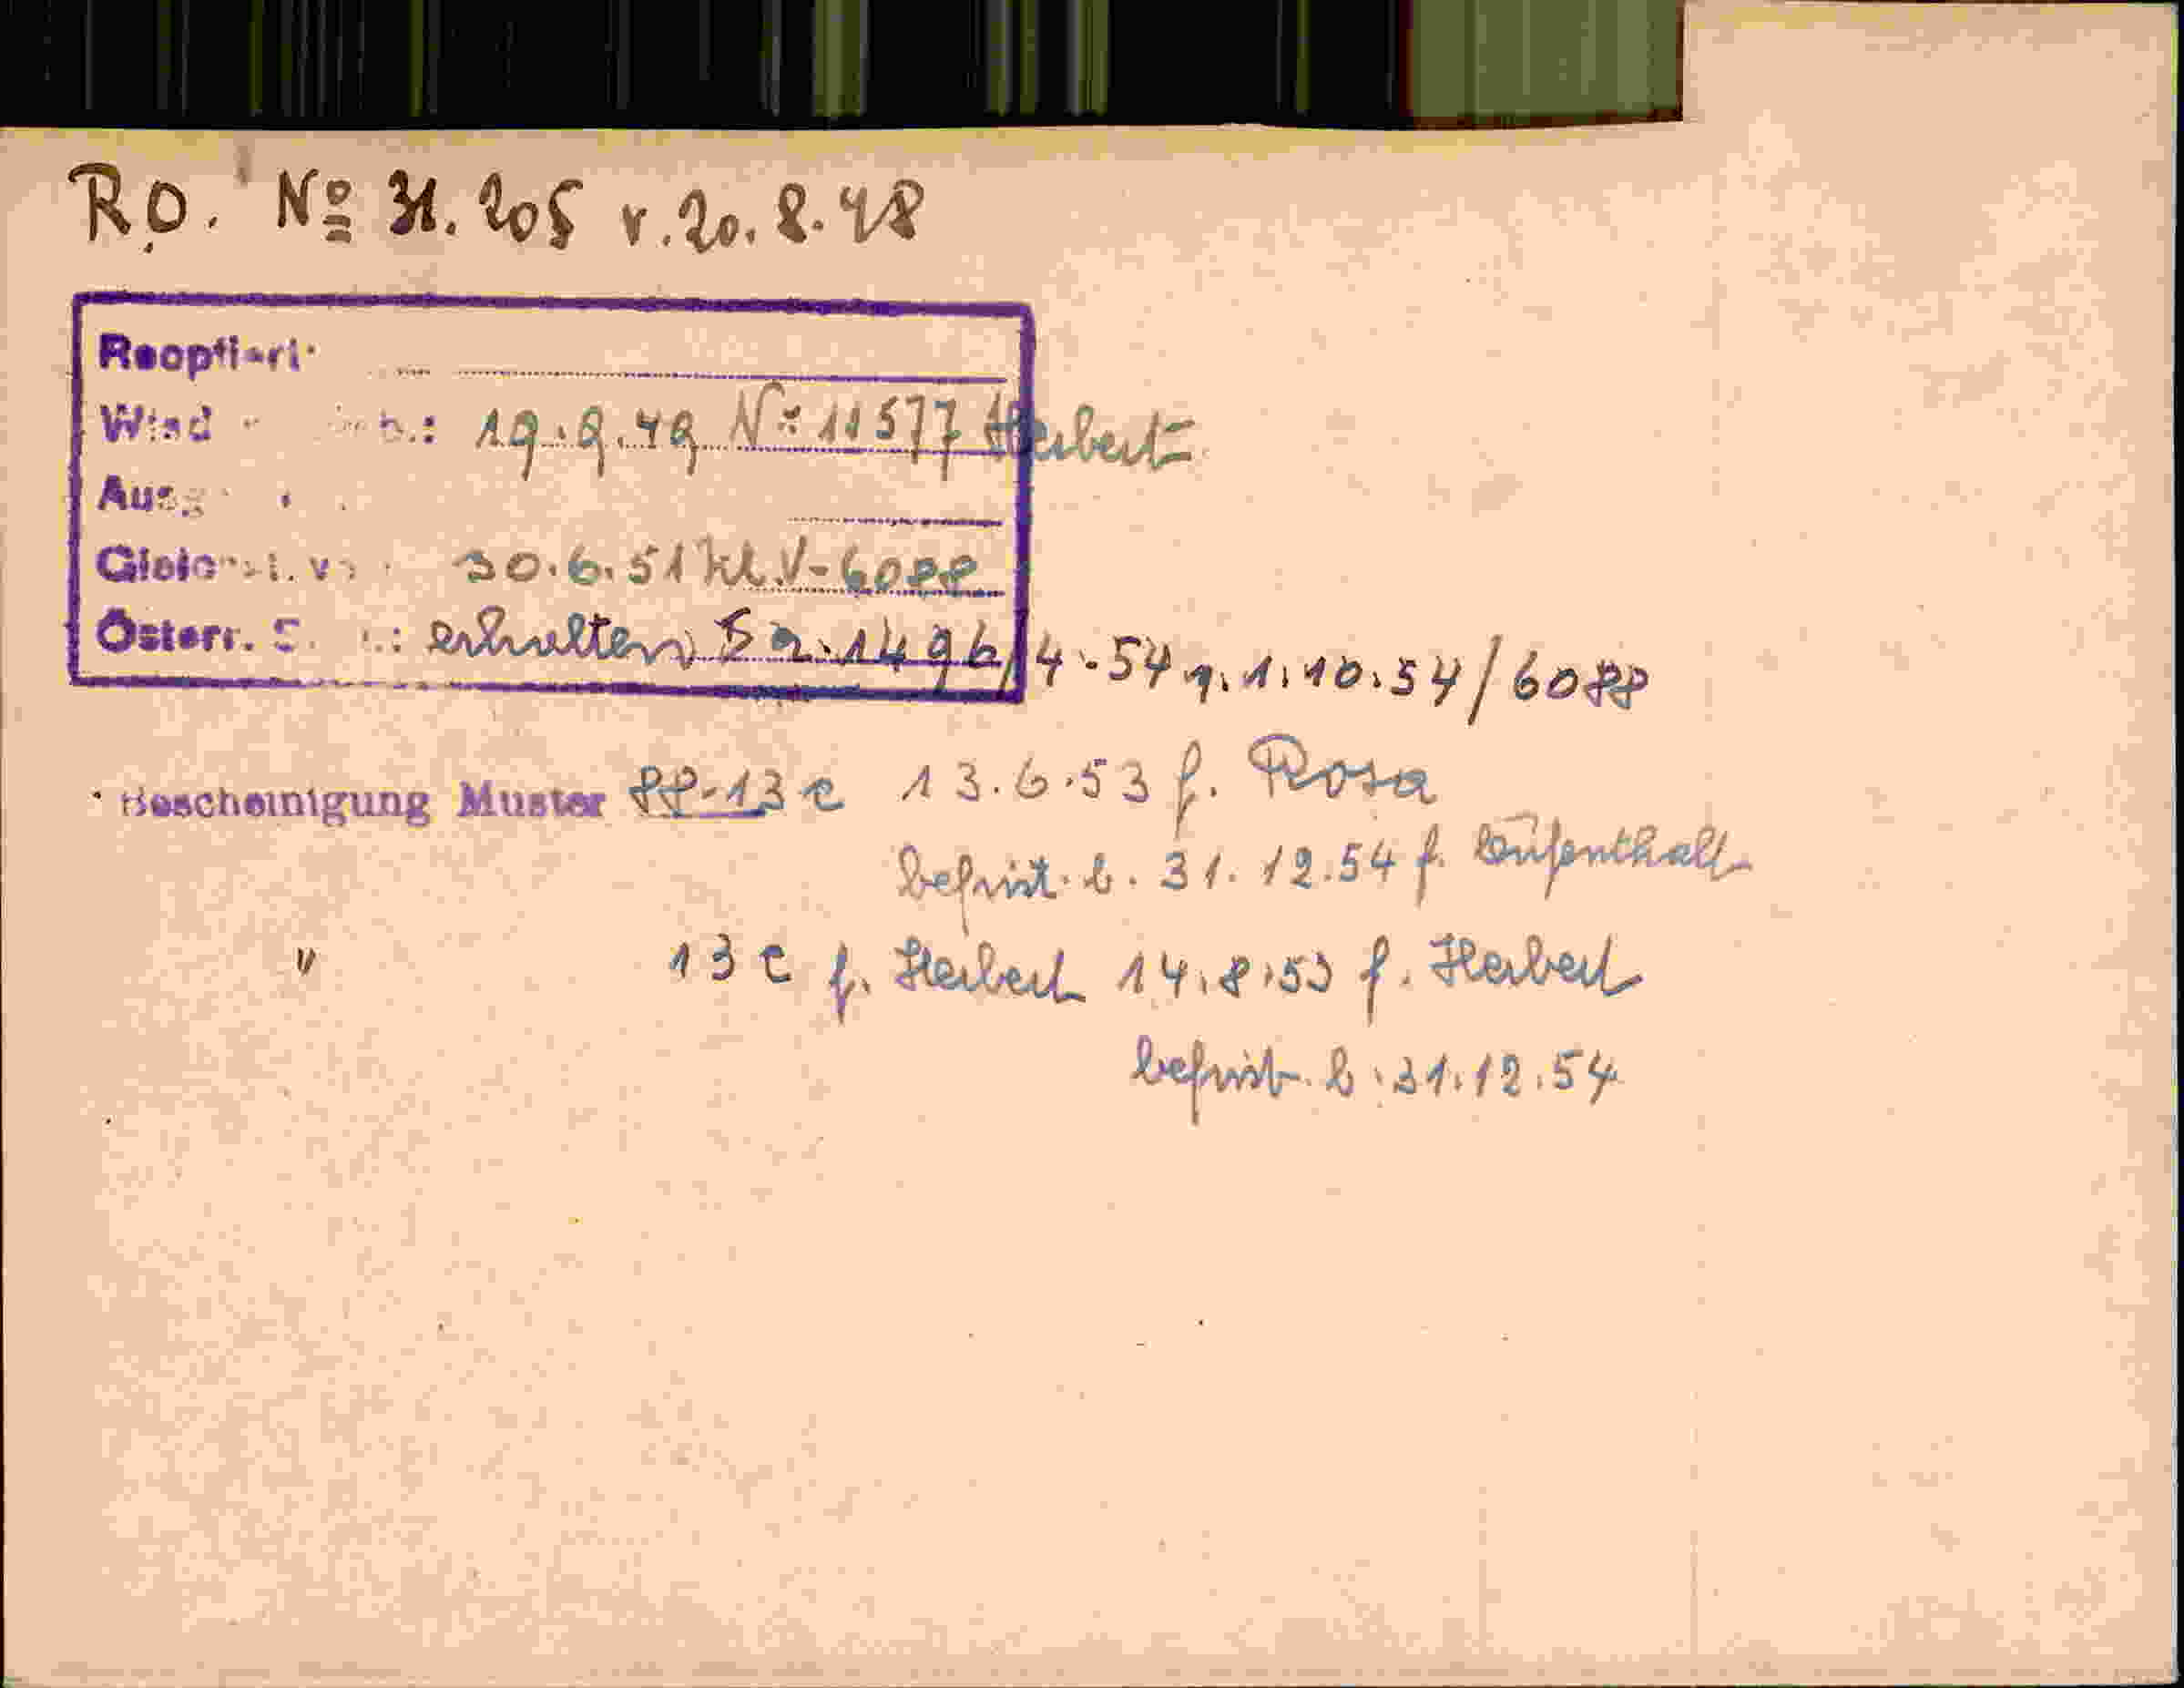 R.O. No 31.205 v. 20.8.48
Reoptiert:
19.9.49 No 11577 Herbert
30.6.51 Kl. V-6088
Österr. erhalten 1496/4-54 1.10.54/6088
Bescheinigung Muster 13 c 13.6.53 f. Rosa
befrist. b. 31.12.54 f.
" 13 c f. Herbert 14.8.53 f. Herbert
befrist. b. 31.12.54